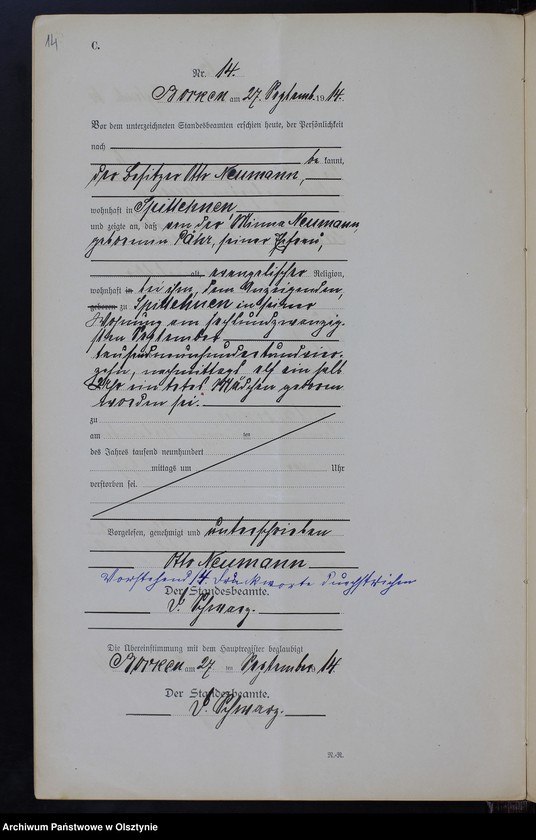 14
C.
Nr. 14.
Borken am 27. Septemb. 1914.
Vor dem unterzeichneten Standesbeamten erschien heute, der Persönlichkeit
nach
be kannt,
der Besitzer Otto Neumann,
wohnhaft in Spittehnen
und zeigte an, daß von der Minna Neumann,
geborenen Pähr, seiner Ehefrau,
alt, evangelischer Religion,
wohnhaft in bei ihm, dem Anzeigenden,
geboren zu Spittehnen in seiner
Wohnung am sechsundzwanzig-
sten September
tausendneunhundertundvier-
zehn, nachmittags elf ein halb
Uhr ein totes Mädchen geboren
worden sei.
zu
am ten
des Jahres tausend neunhundert
mittags um Uhr
verstorben sei.
Vorgelesen, genehmigt und unterschrieben
Otto Neumann
Vorstehend 14 Druckworte durchstrichen
Der Standesbeamte.
Schwarz.
Die Übereinstimmung mit dem Hauptregister beglaubigt
Borken am 27 ten September 1914
Der Standesbeamte.
Schwarz.
R.-R.
Archiwum Państwowe w Olsztynie